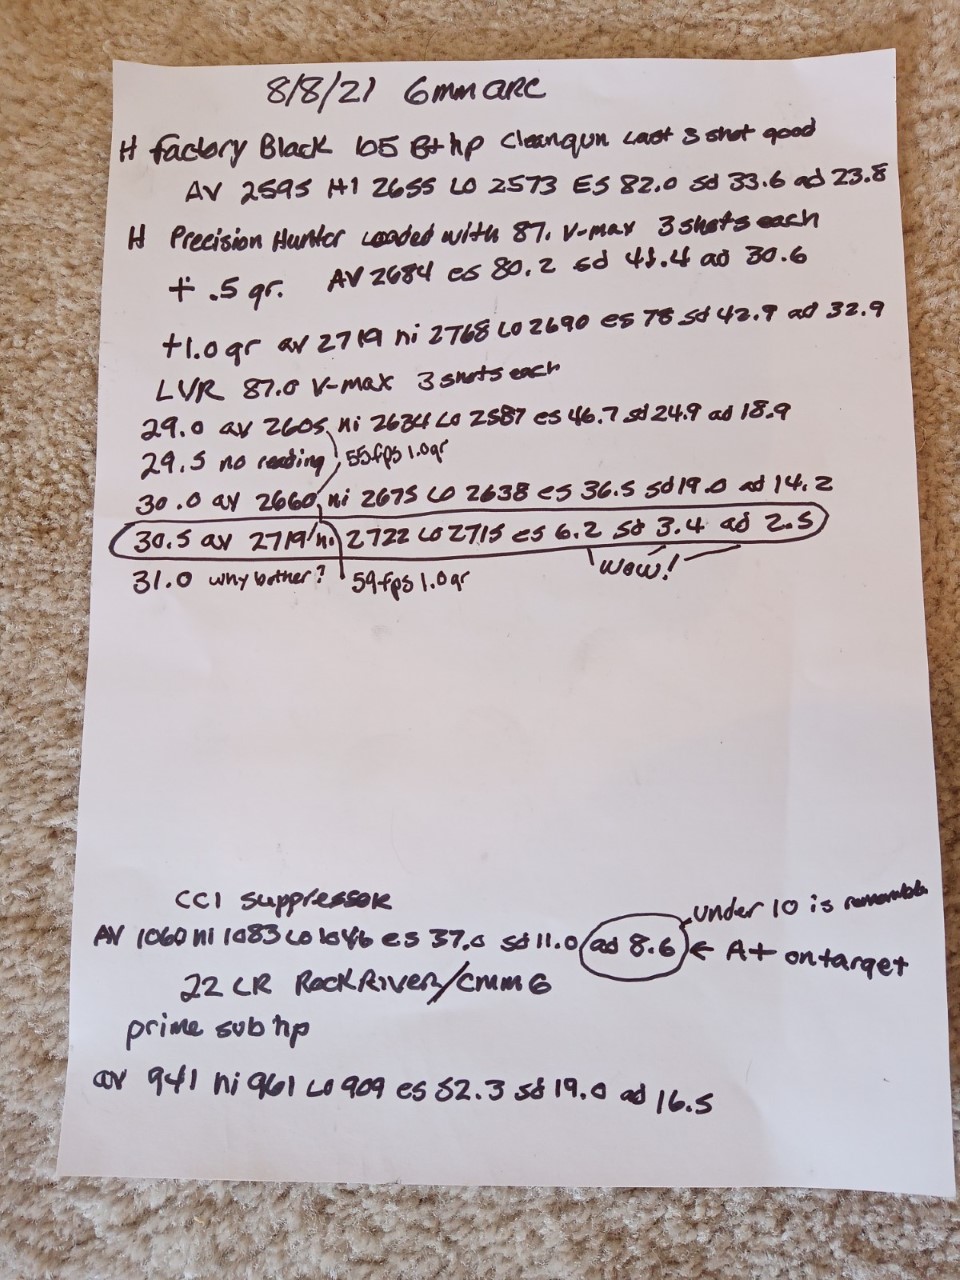 8/8/21 6mm ARC
H Factory Black 105 Bthp Clean gun Last 3 shot good
AV 2595 HI 2655 LO 2573 ES 82.0 sd 33.6 ad 23.8
H Precision Hunter Loaded with 87. V-max 3 shots each
+ .5 gr. AV 2684 es 80.2 sd 41.4 ad 30.6
+1.0 gr av 2719 hi 2768 LO 2690 es 78 sd 42.9 ad 32.9
LVR 87.0 V-max 3 shots each
29.0 av 2605 hi 2634 LO 2587 es 46.7 sd 24.9 ad 18.9
29.5 no reading 55 fps 1.0 gr
30.0 av 2660 hi 2675 LO 2638 es 36.5 sd 19.0 ad 14.2
30.5 av 2719 hi 2722 LO 2715 es 6.2 sd 3.4 ad 2.5
31.0 why bother? 59 fps 1.0 gr wow!
CCI suppressor
under 10 is
AV 1060 hi 1083 LO 1046 es 37.0 sd 11.0 ad 8.6 ← A+ on target
22 LR Rock River/CMMG
prime sub hp
av 941 hi 961 LO 909 es 52.3 sd 19.0 ad 16.5